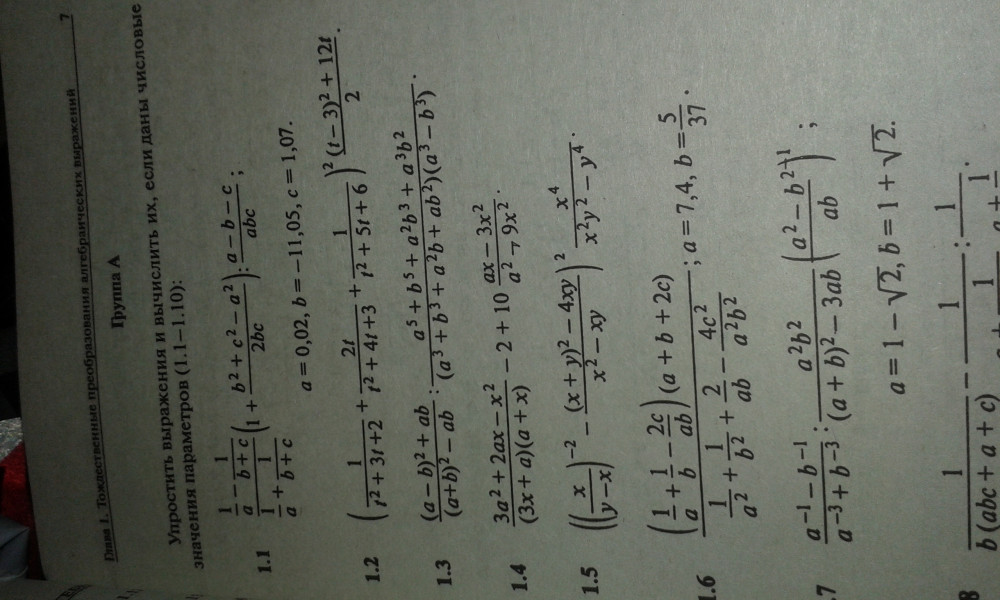 Глава 1. Тождественные преобразования алгебраических выражений 7
Группа А
Упростить выражения и вычислить их, если даны числовые
значения параметров (1.1—1.10):
1.1 \frac{\frac{1}{a} - \frac{1}{b+c}}{\frac{1}{a} + \frac{1}{b+c}} \left(1 + \frac{b^2 + c^2 - a^2}{2bc}\right) : \frac{a-b-c}{abc};
a = 0,02, b = −11,05, c = 1,07.
1.2 \left(\frac{1}{t^2+3t+2} + \frac{2t}{t^2+4t+3} + \frac{1}{t^2+5t+6}\right)^2 \frac{(t-3)^2+12t}{2}.
1.3 \frac{(a-b)^2+ab}{(a+b)^2-ab} : \frac{a^5+b^5+a^2b^3+a^3b^2}{(a^3+b^3+a^2b+ab^2)(a^3-b^3)}.
1.4 \frac{3a^2+2ax-x^2}{(3x+a)(a+x)} - 2 + 10\frac{ax-3x^2}{a^2-9x^2}.
1.5 \left(\left(\frac{x}{y-x}\right)^{-2} - \frac{(x+y)^2-4xy}{x^2-xy}\right)^2 \frac{x^4}{x^2y^2-y^4}.
1.6 \frac{\left(\frac{1}{a}+\frac{1}{b}-\frac{2c}{ab}\right)(a+b+2c)}{\frac{1}{a^2}+\frac{1}{b^2}+\frac{2}{ab}-\frac{4c^2}{a^2b^2}}; a = 7,4, b = \frac{5}{37}.
.7 \frac{a^{-1}-b^{-1}}{a^{-3}+b^{-3}} : \frac{a^2b^2}{(a+b)^2-3ab} \left(\frac{a^2-b^2}{ab}\right)^{-1};
a = 1 − \sqrt{2}, b = 1 + \sqrt{2}.
8 \frac{1}{b(abc+a+c)} - \frac{1}{a+\frac{1}{}} : \frac{1}{a+\frac{1}{}}.